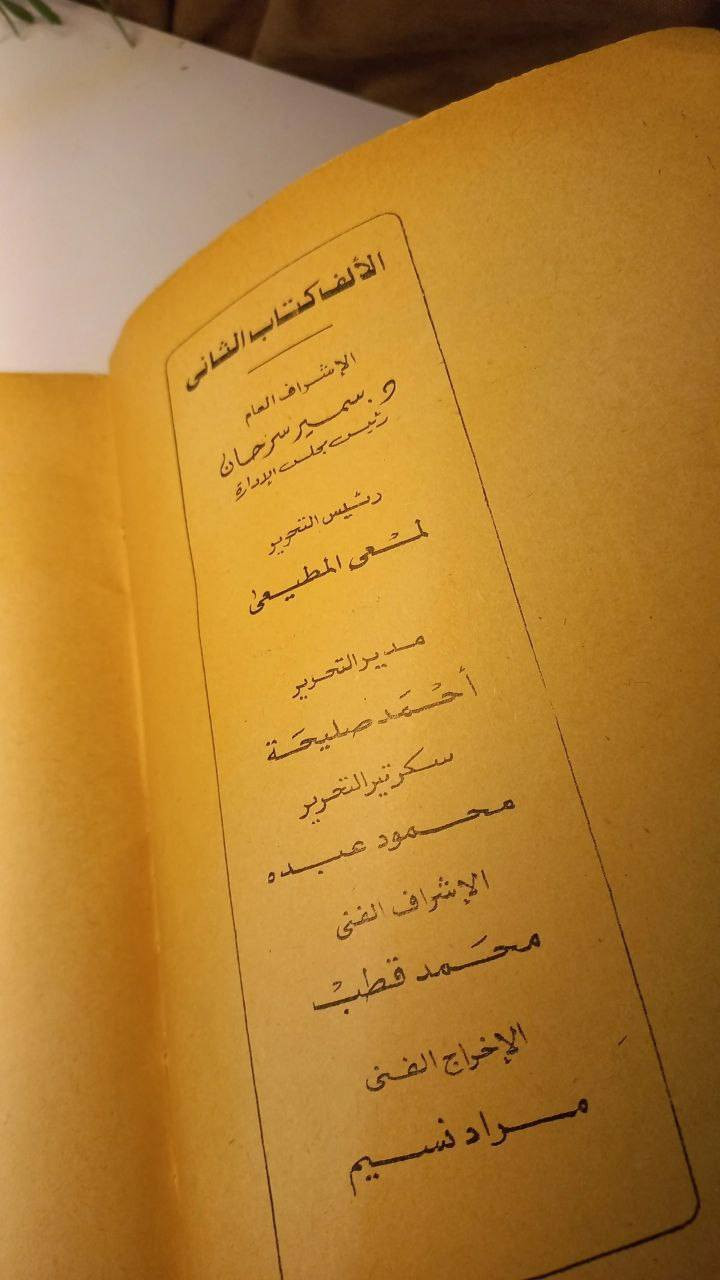 الألف كتاب الثانى
الإشراف العام
د. سمير سرحان
رئيس مجلس الإدارة
رئيس التحرير
لمعى المطيعى
مدير التحرير
أحمد صليحة
سكرتير التحرير
محمود عبده
الإشراف الفنى
محمد قطب
الإخراج الفنى
مراد نسيم